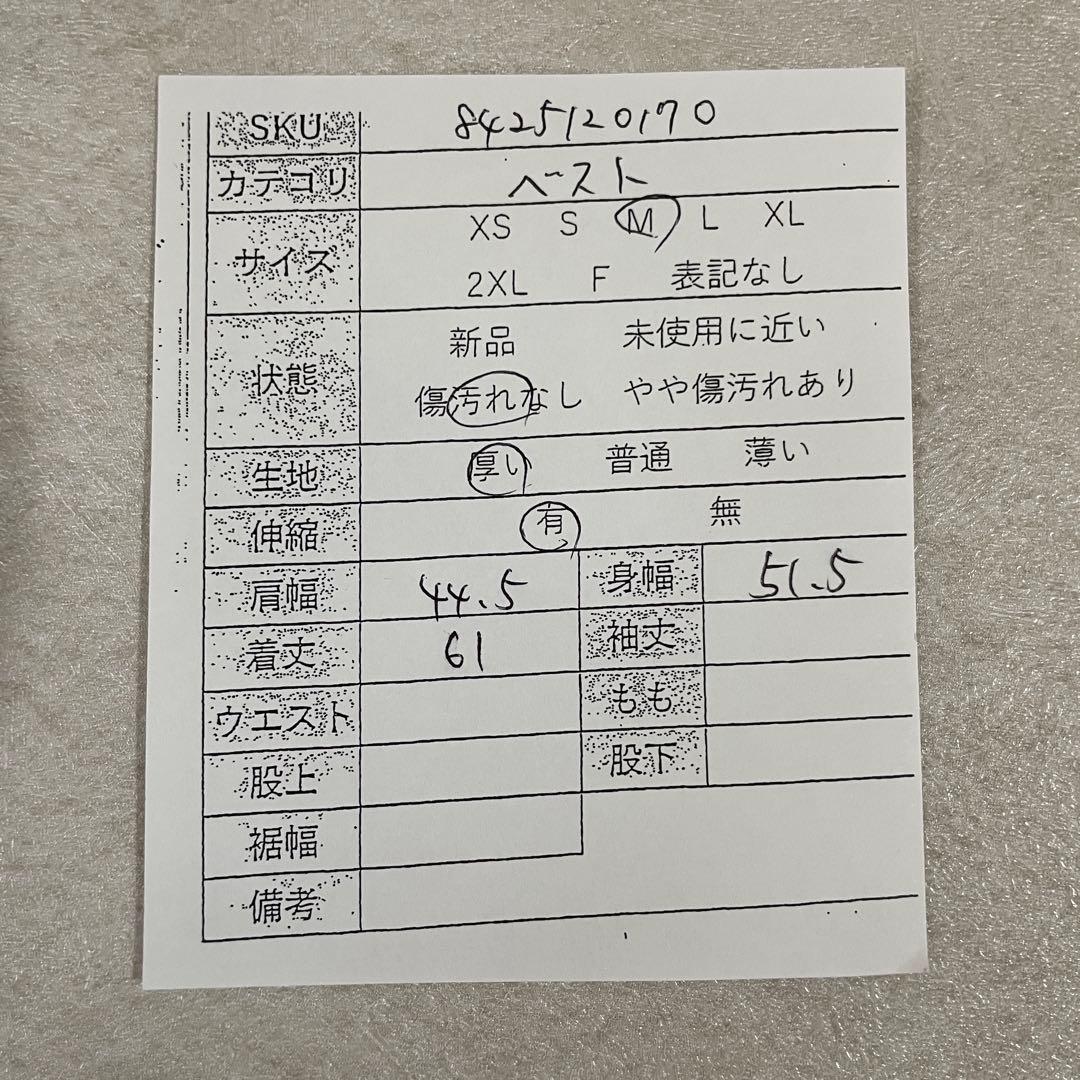 SKU 8425120170
カテゴリ ベスト
サイズ XS S M L XL
2XL F 表記なし
状態 新品 未使用に近い
傷汚れなし やや傷汚れあり
生地 厚い 普通 薄い
伸縮 有 無
肩幅 44.5 身幅 51.5
着丈 61 袖丈
ウエスト もも
股上 股下
裾幅
備考